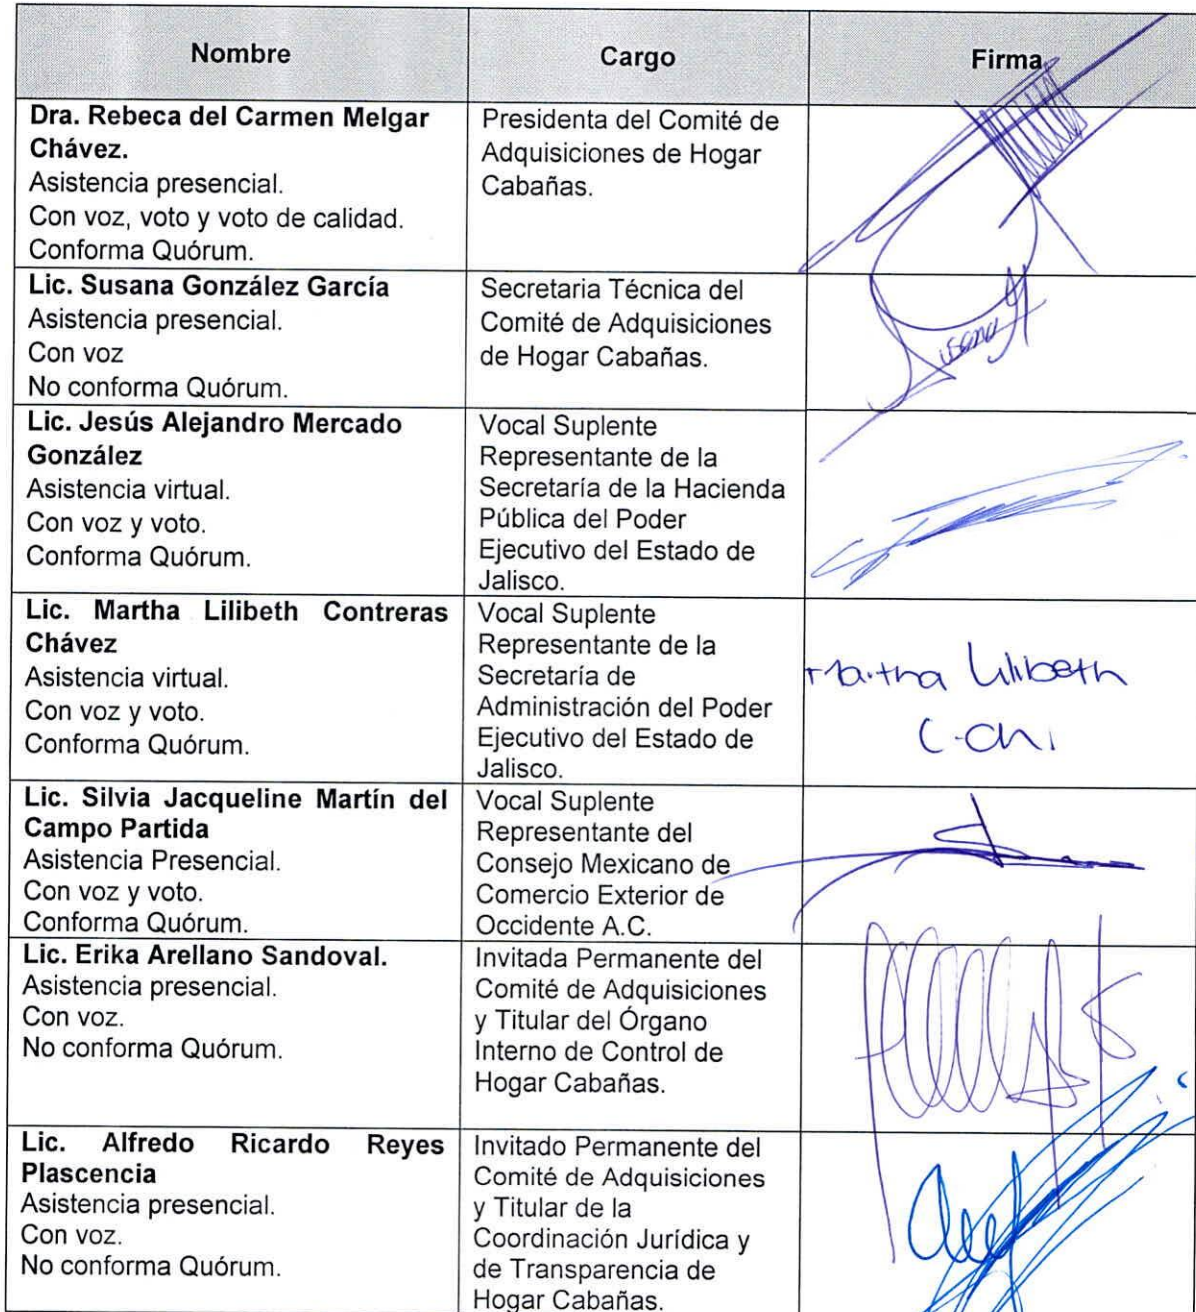 Nombre
Cargo
Firma
Dra. Rebeca del Carmen Melgar
Chávez.
Asistencia presencial.
Con voz, voto y voto de calidad.
Conforma Quórum.
Presidenta del Comité de
Adquisiciones de Hogar
Cabañas.
Lic. Susana González García
Asistencia presencial.
Con voz
No conforma Quórum.
Secretaria Técnica del
Comité de Adquisiciones
de Hogar Cabañas.
Lic. Jesús Alejandro Mercado
González
Asistencia virtual.
Con voz y voto.
Conforma Quórum.
Vocal Suplente
Representante de la
Secretaría de la Hacienda
Pública del Poder
Ejecutivo del Estado de
Jalisco.
Lic. Martha Lilibeth Contreras
Chávez
Asistencia virtual.
Con voz y voto.
Conforma Quórum.
Vocal Suplente
Representante de la
Secretaría de
Administración del Poder
Ejecutivo del Estado de
Jalisco.
Martha Lilibeth
Lic. Silvia Jacqueline Martín del
Campo Partida
Asistencia Presencial.
Con voz y voto.
Conforma Quórum.
Vocal Suplente
Representante del
Consejo Mexicano de
Comercio Exterior de
Occidente A.C.
Lic. Erika Arellano Sandoval.
Asistencia presencial.
Con voz.
No conforma Quórum.
Invitada Permanente del
Comité de Adquisiciones
y Titular del Órgano
Interno de Control de
Hogar Cabañas.
Lic. Alfredo Ricardo Reyes
Plascencia
Asistencia presencial.
Con voz.
No conforma Quórum.
Invitado Permanente del
Comité de Adquisiciones
y Titular de la
Coordinación Jurídica y
de Transparencia de
Hogar Cabañas.